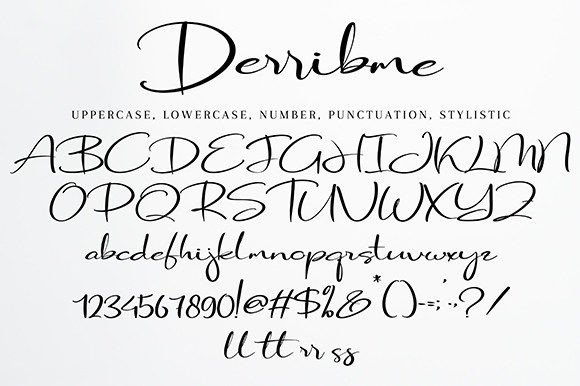 Derribme
UPPERCASE, LOWERCASE, NUMBER, PUNCTUATION, STYLISTIC
ABCDEFGHIJKLMN
OPQRSTUVWXYZ
abcdefhijklmnopqrstuvwxyz
1234567890!@#$%&*()-=;·.,?/
ll tt rr ss